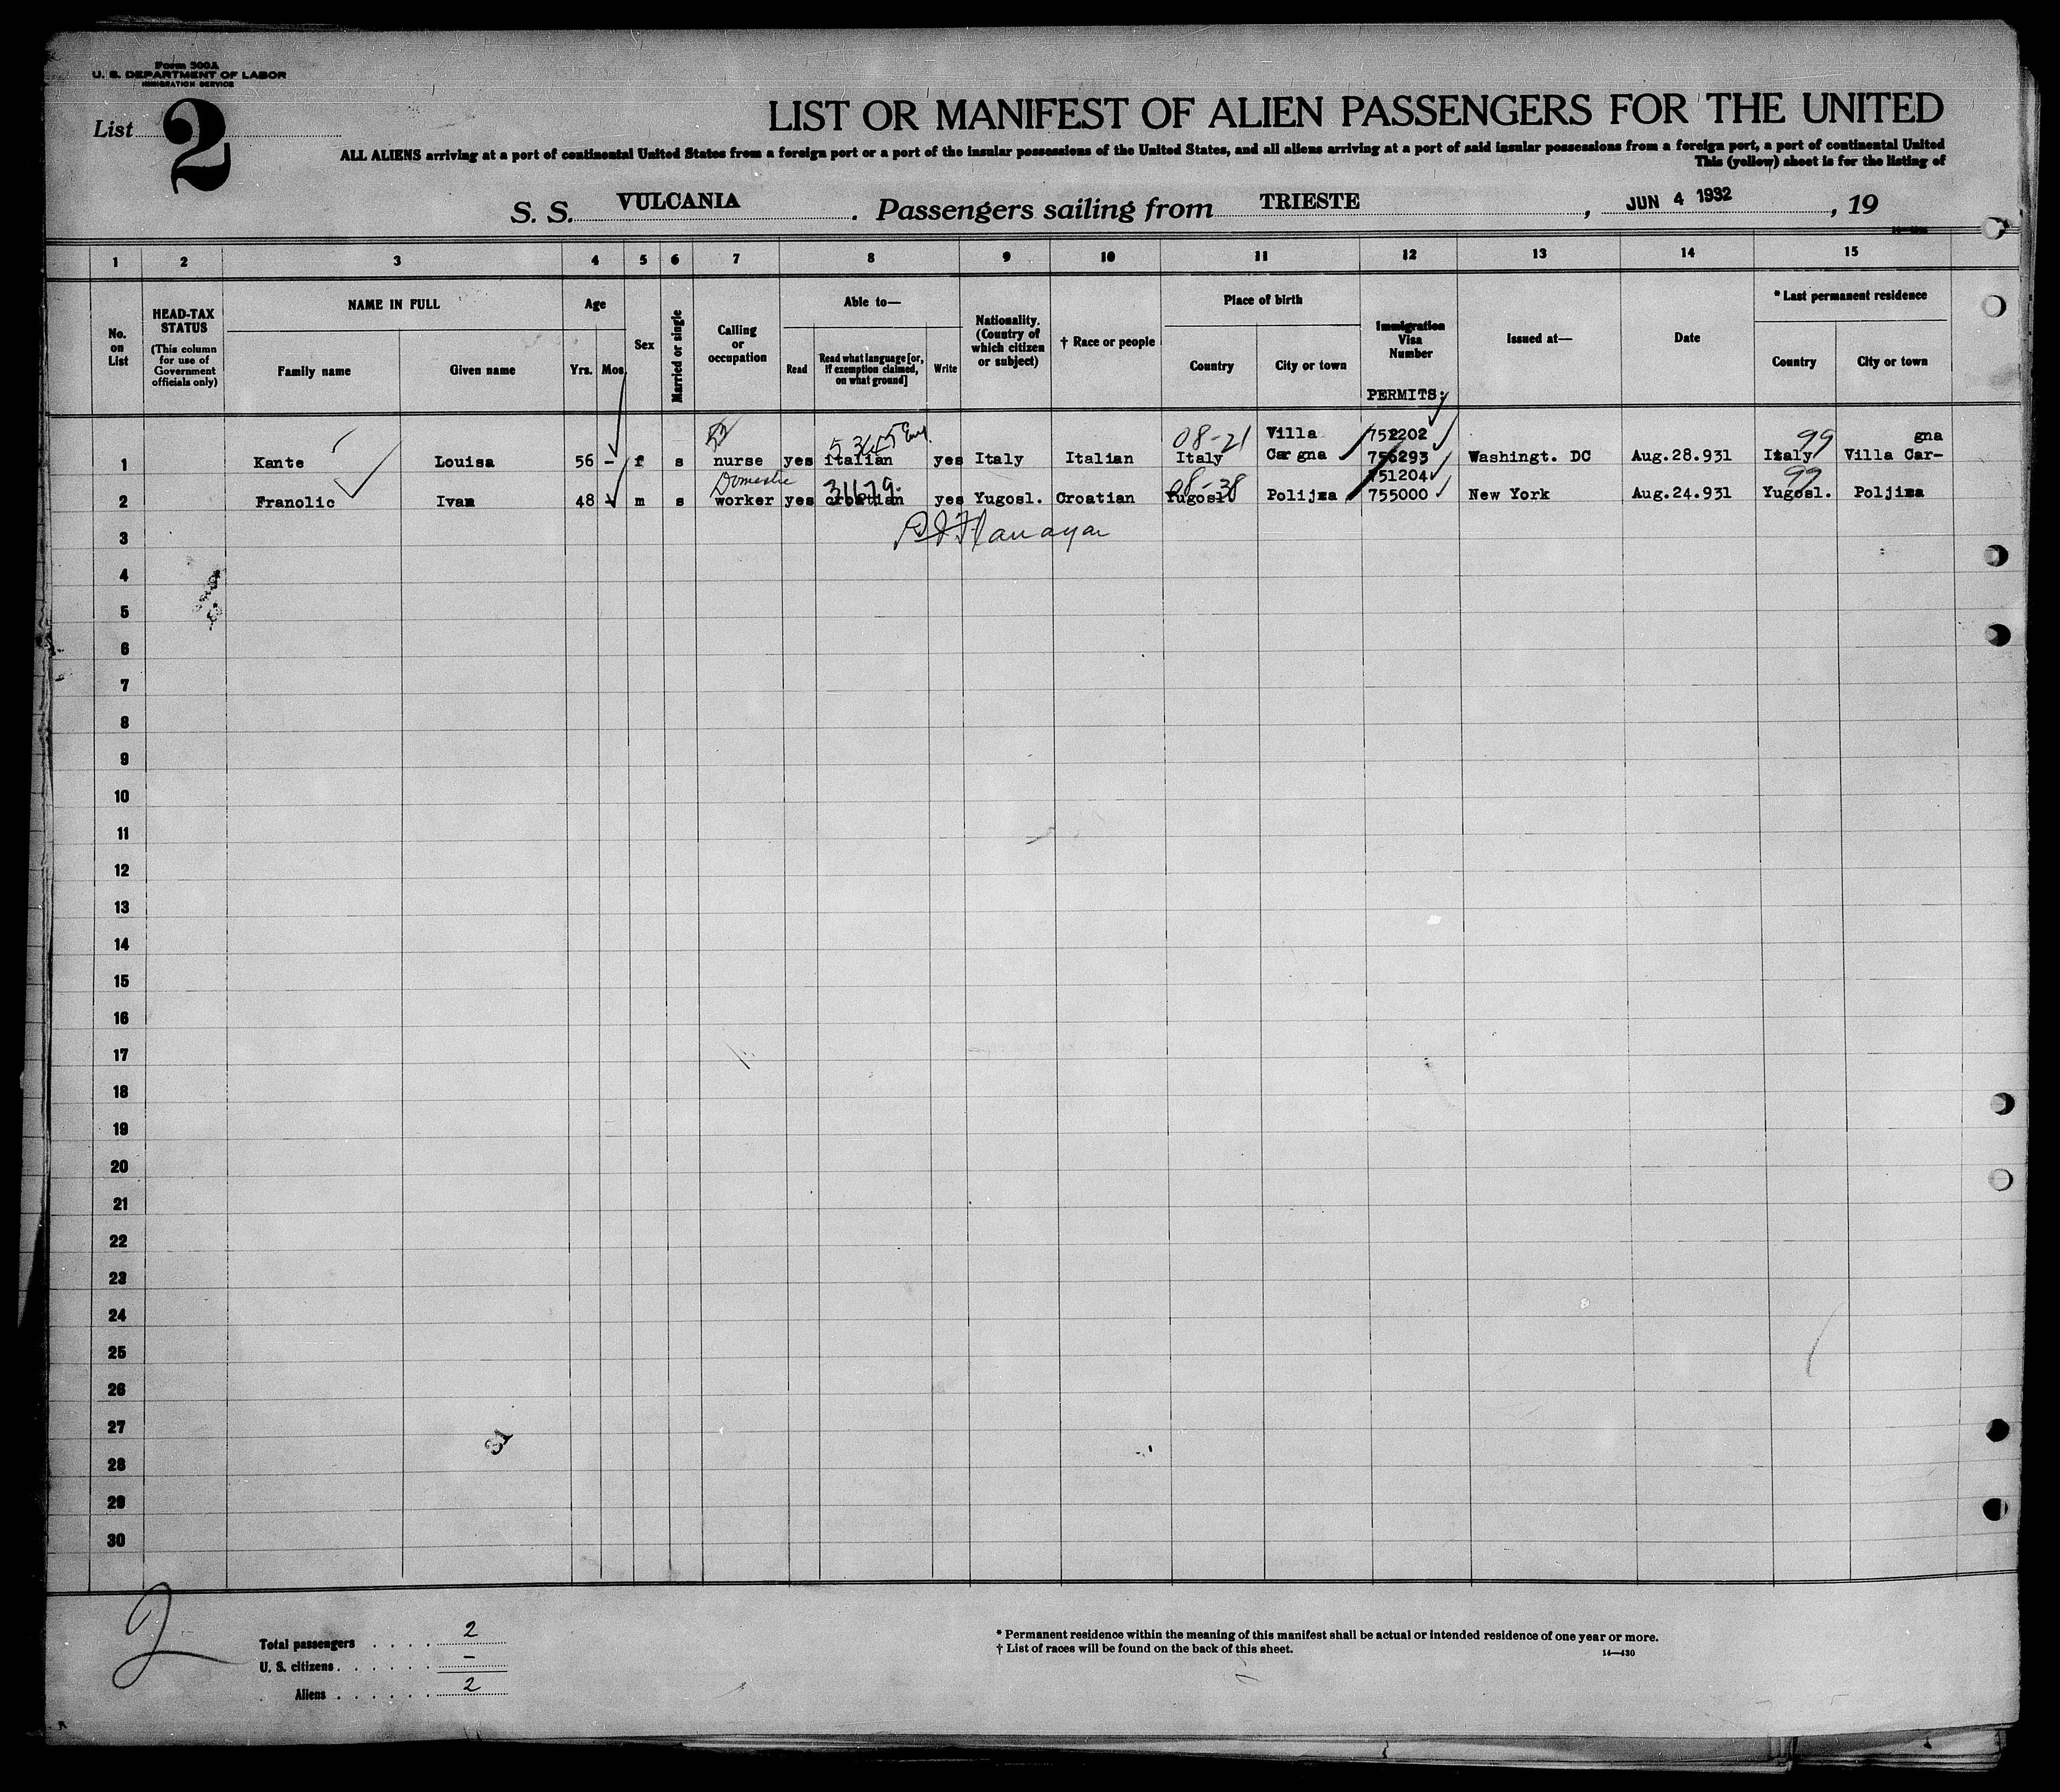 Form 500A
U. S. DEPARTMENT OF LABOR
IMMIGRATION SERVICE
List 2
LIST OR MANIFEST OF ALIEN PASSENGERS FOR THE UNITED
ALL ALIENS arriving at a port of continental United States from a foreign port or a port of the insular possessions of the United States, and all aliens arriving at a port of said insular possessions from a foreign port, a port of continental United
This (yellow) sheet is for the listing of
S. S. VULCANIA. Passengers sailing from TRIESTE, JUN 4 1932, 19
1 2 3 4 5 6 7 8 9 10 11 12 13 14 15
No. on List
HEAD-TAX STATUS
(This column for use of Government officials only)
NAME IN FULL
Family name Given name
Age
Yrs. Mos.
Sex
Married or single
Calling or occupation
Able to—
Read Read what language [or, if exemption claimed, on what ground] Write
Nationality. (Country of which citizen or subject)
† Race or people
Place of birth
Country City or town
Immigration Visa Number
PERMITS:
Issued at—
Date
* Last permanent residence
Country City or town
5 3645 Eng. 08-21 Villa 752202 99 gna
1 Kante Louisa 56 - f s nurse yes italian yes Italy Italian Italy Cargna 756293 Washingt. DC Aug.28.931 Italy Villa Car-
Domestic 31679. 08-38 751204 99
2 Franolic Ivan 48 - m s worker yes croatian yes Yugosl. Croatian Yugosl. Polijza 755000 New York Aug.24.931 Yugosl. Poljiza
3
4
5
6
7
8
9
10
11
12
13
14
15
16
17
18
19
20
21
22
23
24
25
26
27
31
28
29
30
2
Total passengers . . . . 2
U. S. citizens . . . . . . -
Aliens . . . . . . 2
* Permanent residence within the meaning of this manifest shall be actual or intended residence of one year or more.
† List of races will be found on the back of this sheet.
14—430